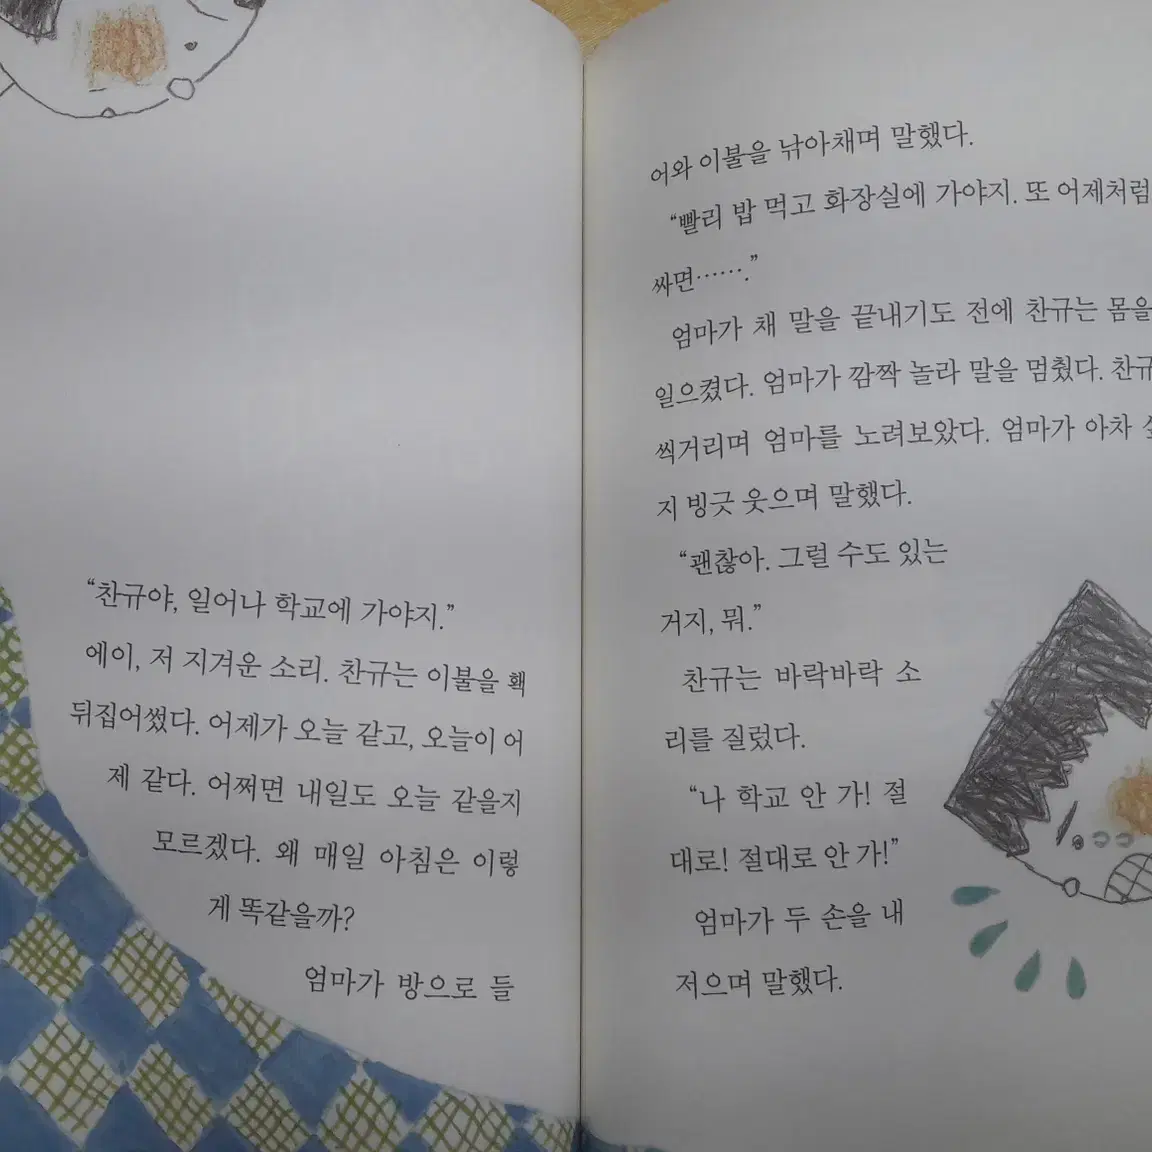 “찬규야, 일어나 학교에 가야지.”
에이, 저 지겨운 소리. 찬규는 이불을 홱
뒤집어썼다. 어제가 오늘 같고, 오늘이 어
제 같다. 어쩌면 내일도 오늘 같을지
모르겠다. 왜 매일 아침은 이렇
게 똑같을까?
엄마가 방으로 들
어와 이불을 낚아채며 말했다.
“빨리 밥 먹고 화장실에 가야지. 또 어제처럼
싸면…….”
엄마가 채 말을 끝내기도 전에 찬규는 몸을
일으켰다. 엄마가 깜짝 놀라 말을 멈췄다. 찬규
씩거리며 엄마를 노려보았다. 엄마가 아차
지 빙긋 웃으며 말했다.
“괜찮아. 그럴 수도 있는
거지, 뭐.”
찬규는 바락바락 소
리를 질렀다.
“나 학교 안 가! 절
대로! 절대로 안 가!”
엄마가 두 손을 내
저으며 말했다.